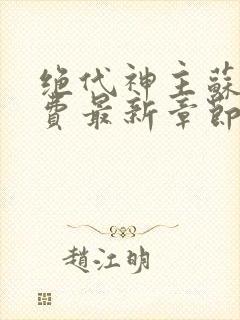 绝代神主蘇
費最新章節
趙江明